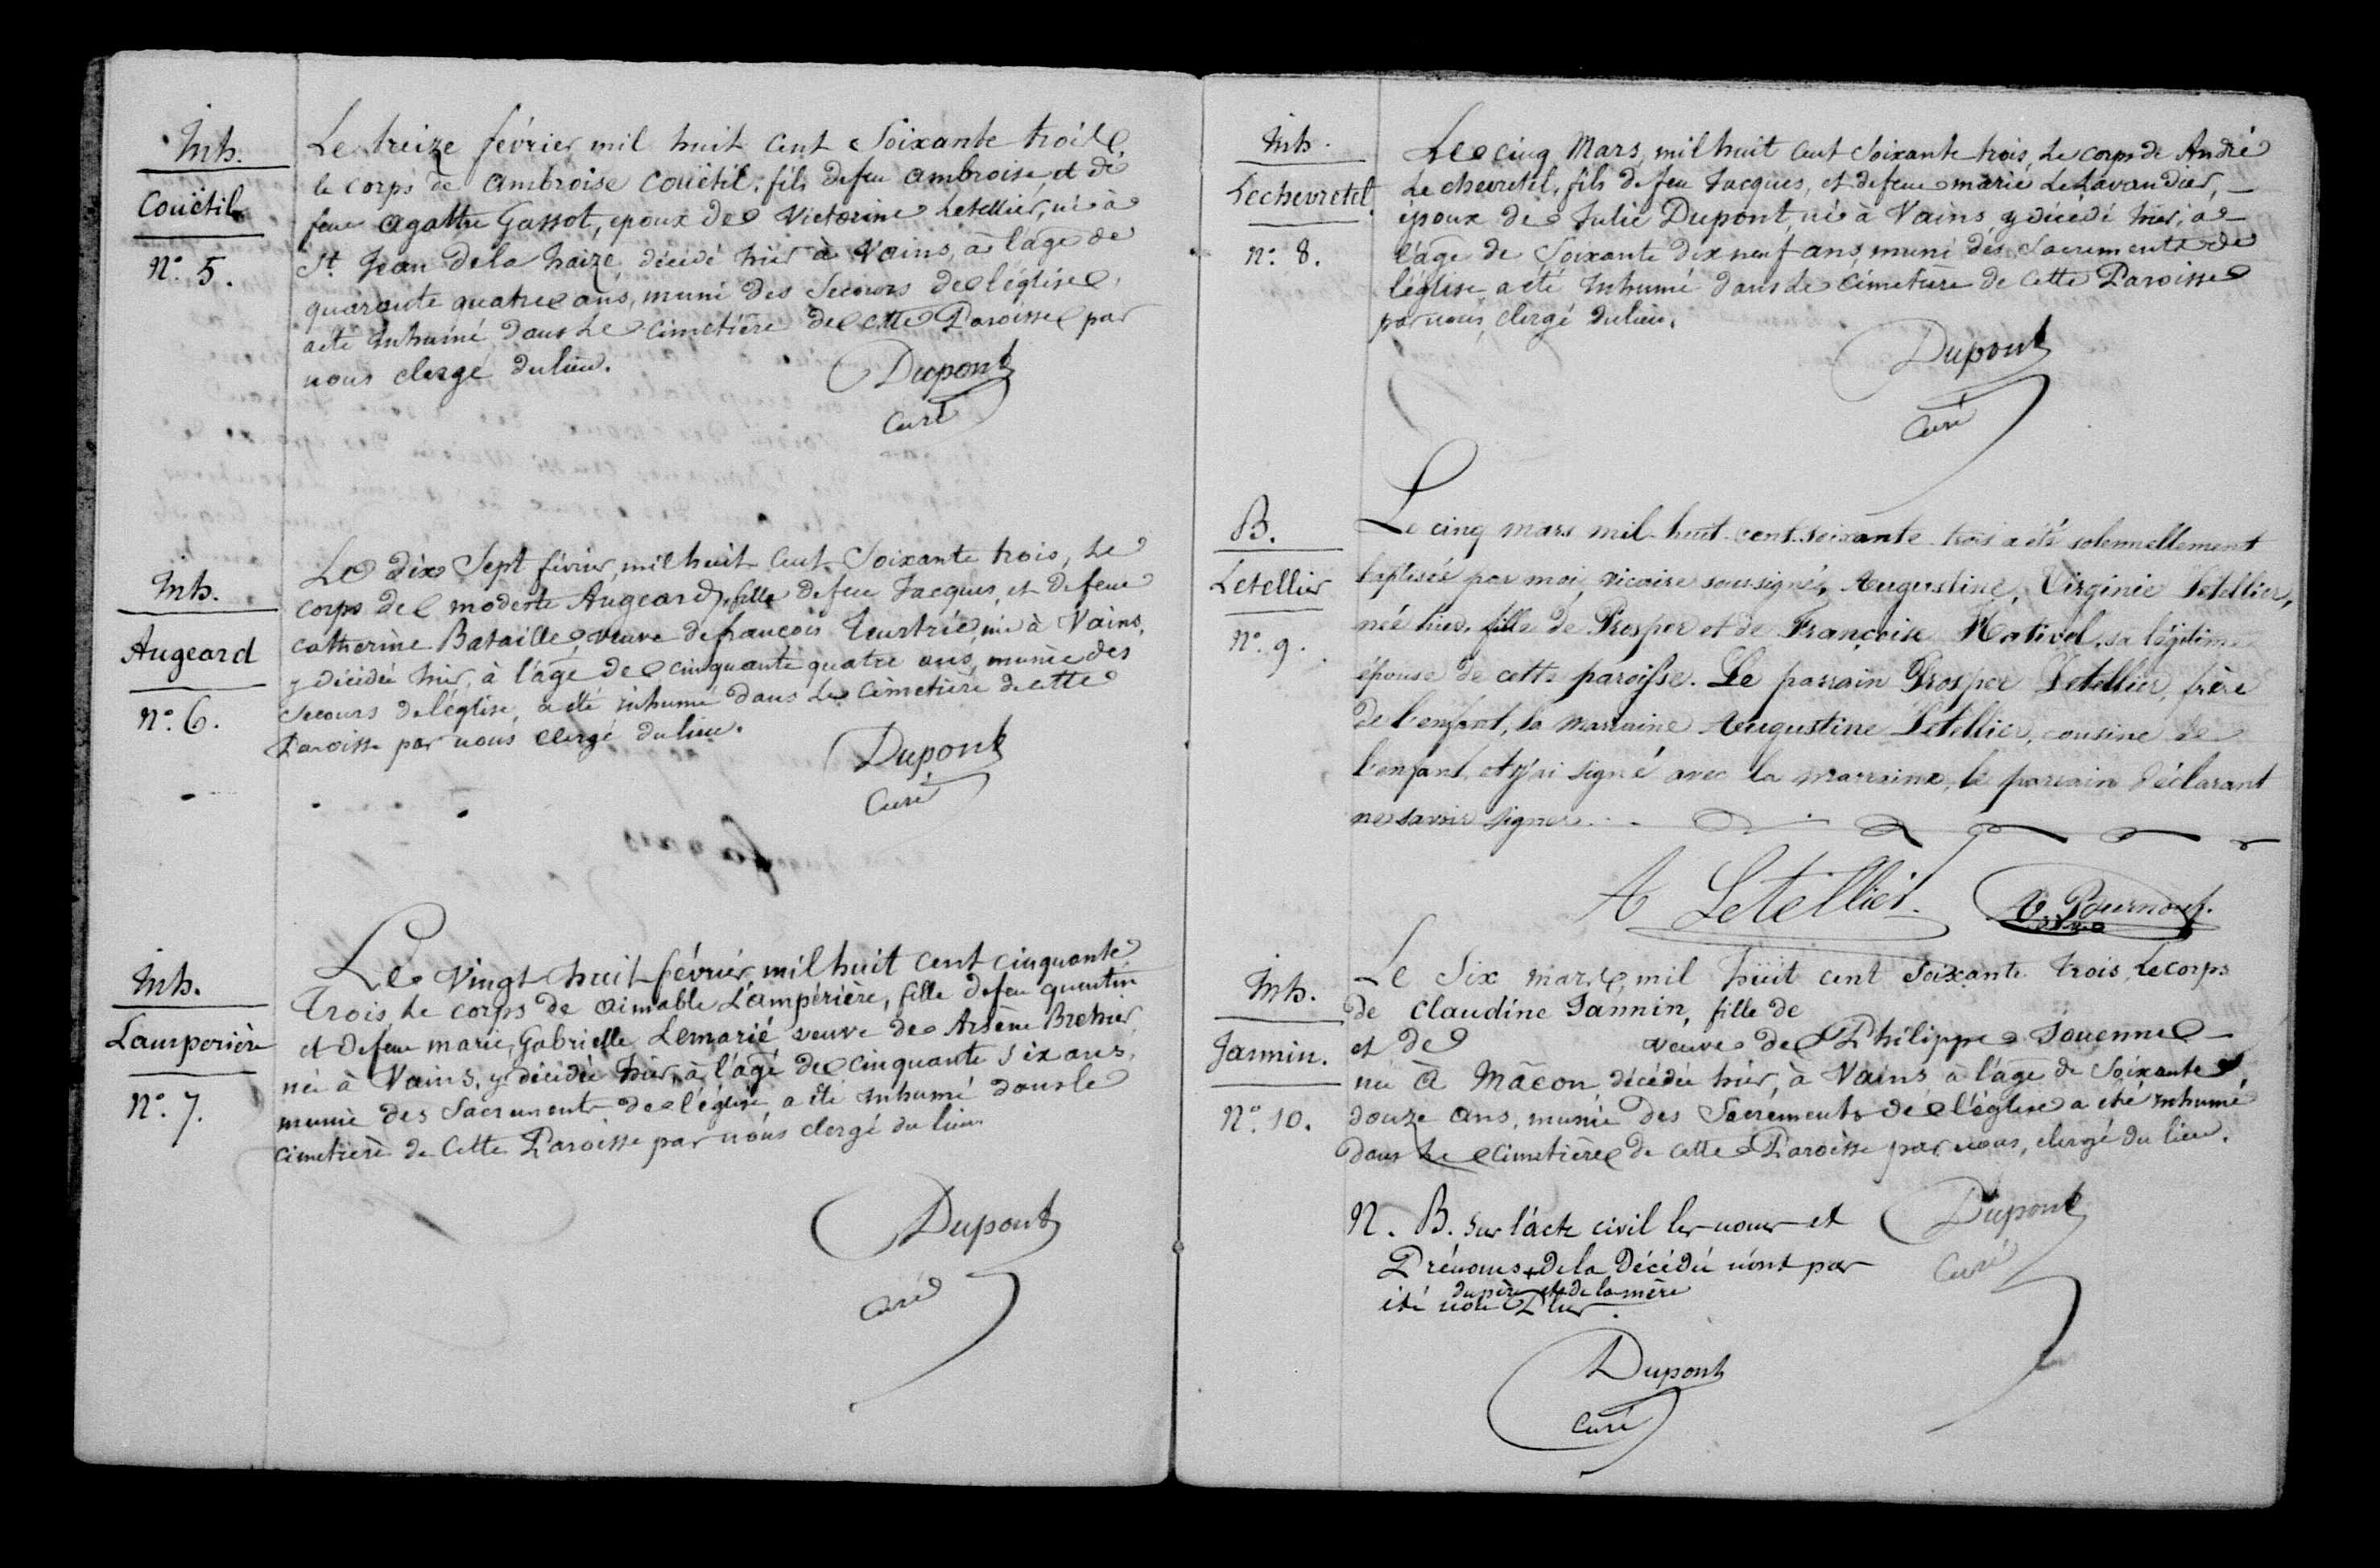 Inh.
Couëtil
N°. 5.
Le treize février mil huit cent Soixante trois,
le corps de Ambroise Couëtil, fils de feu Ambroise, et de
feue Agathe Gassot, epoux de Victorine Letellier, né à
St Jean de la haize décédé hier à Vains, à l'age de
quarante quatre ans, muni des Secours de l'église,
a été inhumé dans le Cimetière de cette Paroisse par
nous clergé du lieu.
Dupont
Curé
Inh.
Augeard
N°. 6.
Le dix Sept février, mil huit Cent Soixante trois, le
corps de modeste Augeard, fille de feu Jacques, et de feue
Catherine Bataille, veuve de françois née à Vains,
y décédée hier, à l'âge de cinquante quatre ans, munie des
Secours de l'église, a été inhumé dans le Cimetière de cette
Paroisse par nous clergé du lieu.
Dupont
Curé
Inh.
Lamperière
N°. 7.
Le Vingt huit février, mil huit cent cinquante
trois le corps de aimable Lampérière, fille de feu quentin
et de feue marie, Gabrielle Lemarié veuve de Arsène Brehier
née à Vains, y décédée hier, à l'âgé de cinquante six ans,
munie des Sacrements de l'église, a été inhumé dans le
Cimetière de Cette Paroisse par nous clergé du lieu
Dupont
Curé
Inh.
Lechevretel
N°. 8.
Le cinq Mars, mil huit Cent Soixante trois, le corps de André
Le chevretel, fils de feu Jacques, et de feue marie Le Lavandier, —
époux de Julie Dupont, né à Vains y décédé hier, à —
l'âge de Soixante dix neuf ans, muni des Sacrements de
l'église a été Inhumé dans le Cimetière de Cette Paroisse
par nous, clergé du lieu.
Dupont
Curé
B.
Letellier
N°. 9.
Le cinq mars mil-huit-cent-soixante-trois a été solennellement
baptisée par moi, vicaire soussigné, Augustine, Virginie Letellier,
née hier, fille de Prosper et de Françoise Hativel, sa légitime
épouse de cette paroisse. Le parrain Prosper Letellier, frère
de l'enfant, la marraine Augustine Letellier, cousine de
l'enfant, et j'ai signé avec la marraine, le parrain déclarant
ne savoir signer.
A Letellier.
Inh.
Jannin.
N°. 10.
Le Six mars, mil huit cent Soixante trois, Le corps
de Claudine Jannin, fille de
et de veuve de Philippe Jouenne —
née à Mâcon, décédée hier, à Vains à l'âge de Soixante
douze ans, munie des Sacréments de l'église a été inhumé
dans le Cimetière de cette Paroisse par nous, clergé du lieu.
Dupont
Curé
N. B. Sur l'acte civil les noms et
Prénoms + de la Décédée n'ont pas
du père et de la mère
été non Plus.
Dupont
Curé